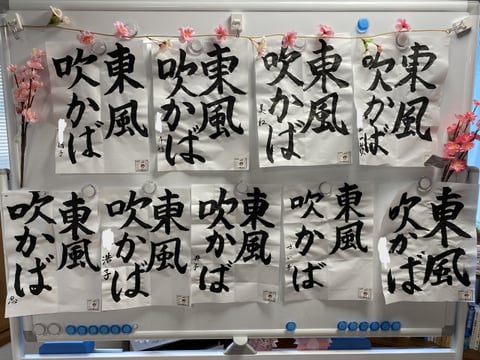 東風
吹かば
東風
吹かば
東風
吹かば
東風
吹かば
東風
吹かば
東風
吹かば
浩子
東風
吹かば
東風
吹かば
東風
吹かば